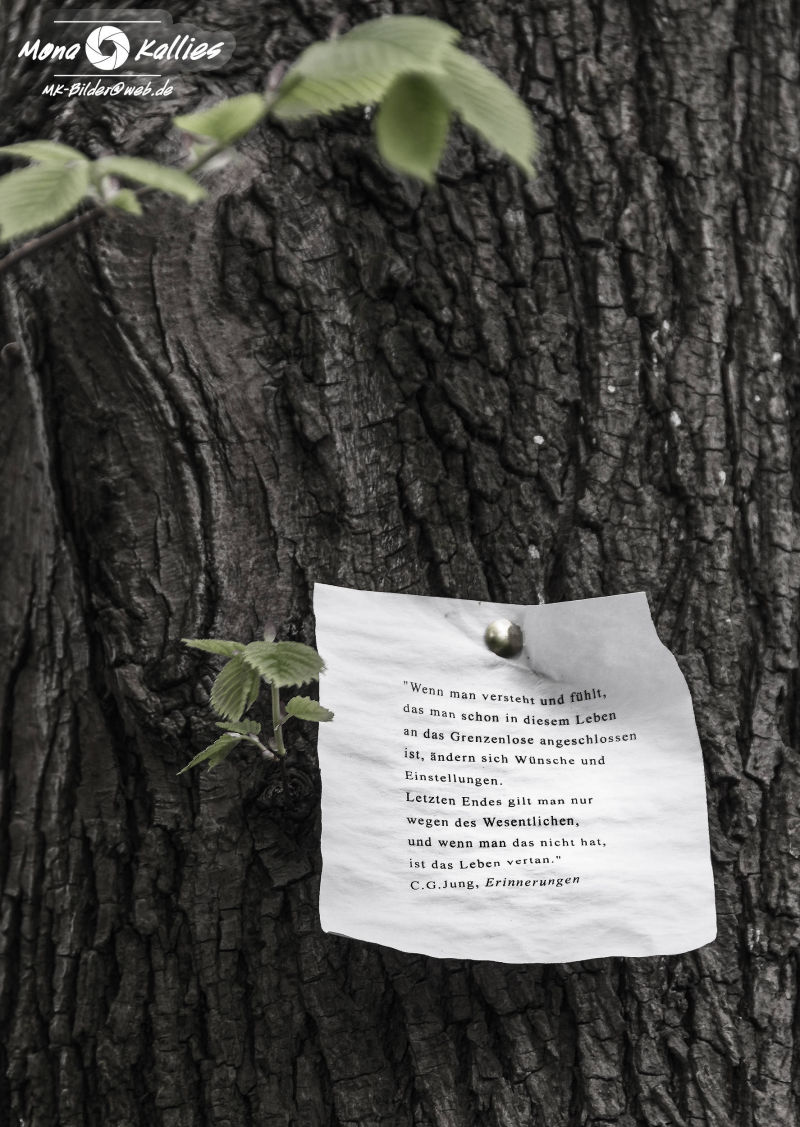 Mona Kallies
MK-Bilder@web.de
"Wenn man versteht und fühlt,
das man schon in diesem Leben
an das Grenzenlose angeschlossen
ist, ändern sich Wünsche und
Einstellungen.
Letzten Endes gilt man nur
wegen des Wesentlichen,
und wenn man das nicht hat,
ist das Leben vertan."
C.G.Jung, Erinnerungen